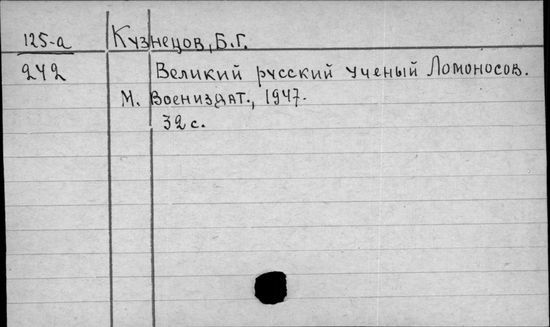 125-а Кузнецов, Б.Г.
242 Великий русский ученый Ломоносов.
М. Воениздат., 1947.
32 с.